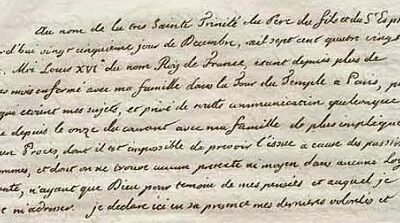 Au nom de la tres Sainte Trinité du Pere du fils et du St Esp
d'hui vingt cinquieme jour de Decembre, mil sept cent quatre ving
Moi Louis XVIe du nom Roy de France, etant depuis plus de
mois enfermé avec ma famille dans la Tour du Temple a Paris, pa
qui etoient mes sujets, et privé de toutte communication quelconque
depuis le onze du courant avec ma famille de plus impliqué
un Proces dont il est impossible de prevoir l'issue a cause des passio
mmes, et dont on ne trouve aucun pretexte ni moyen dans aucune Loy
ante, n'ayant que Dieu pour temoin de mes pensées et auquel je
m'adresser. je declare ici en sa presence mes dernieres volontés et